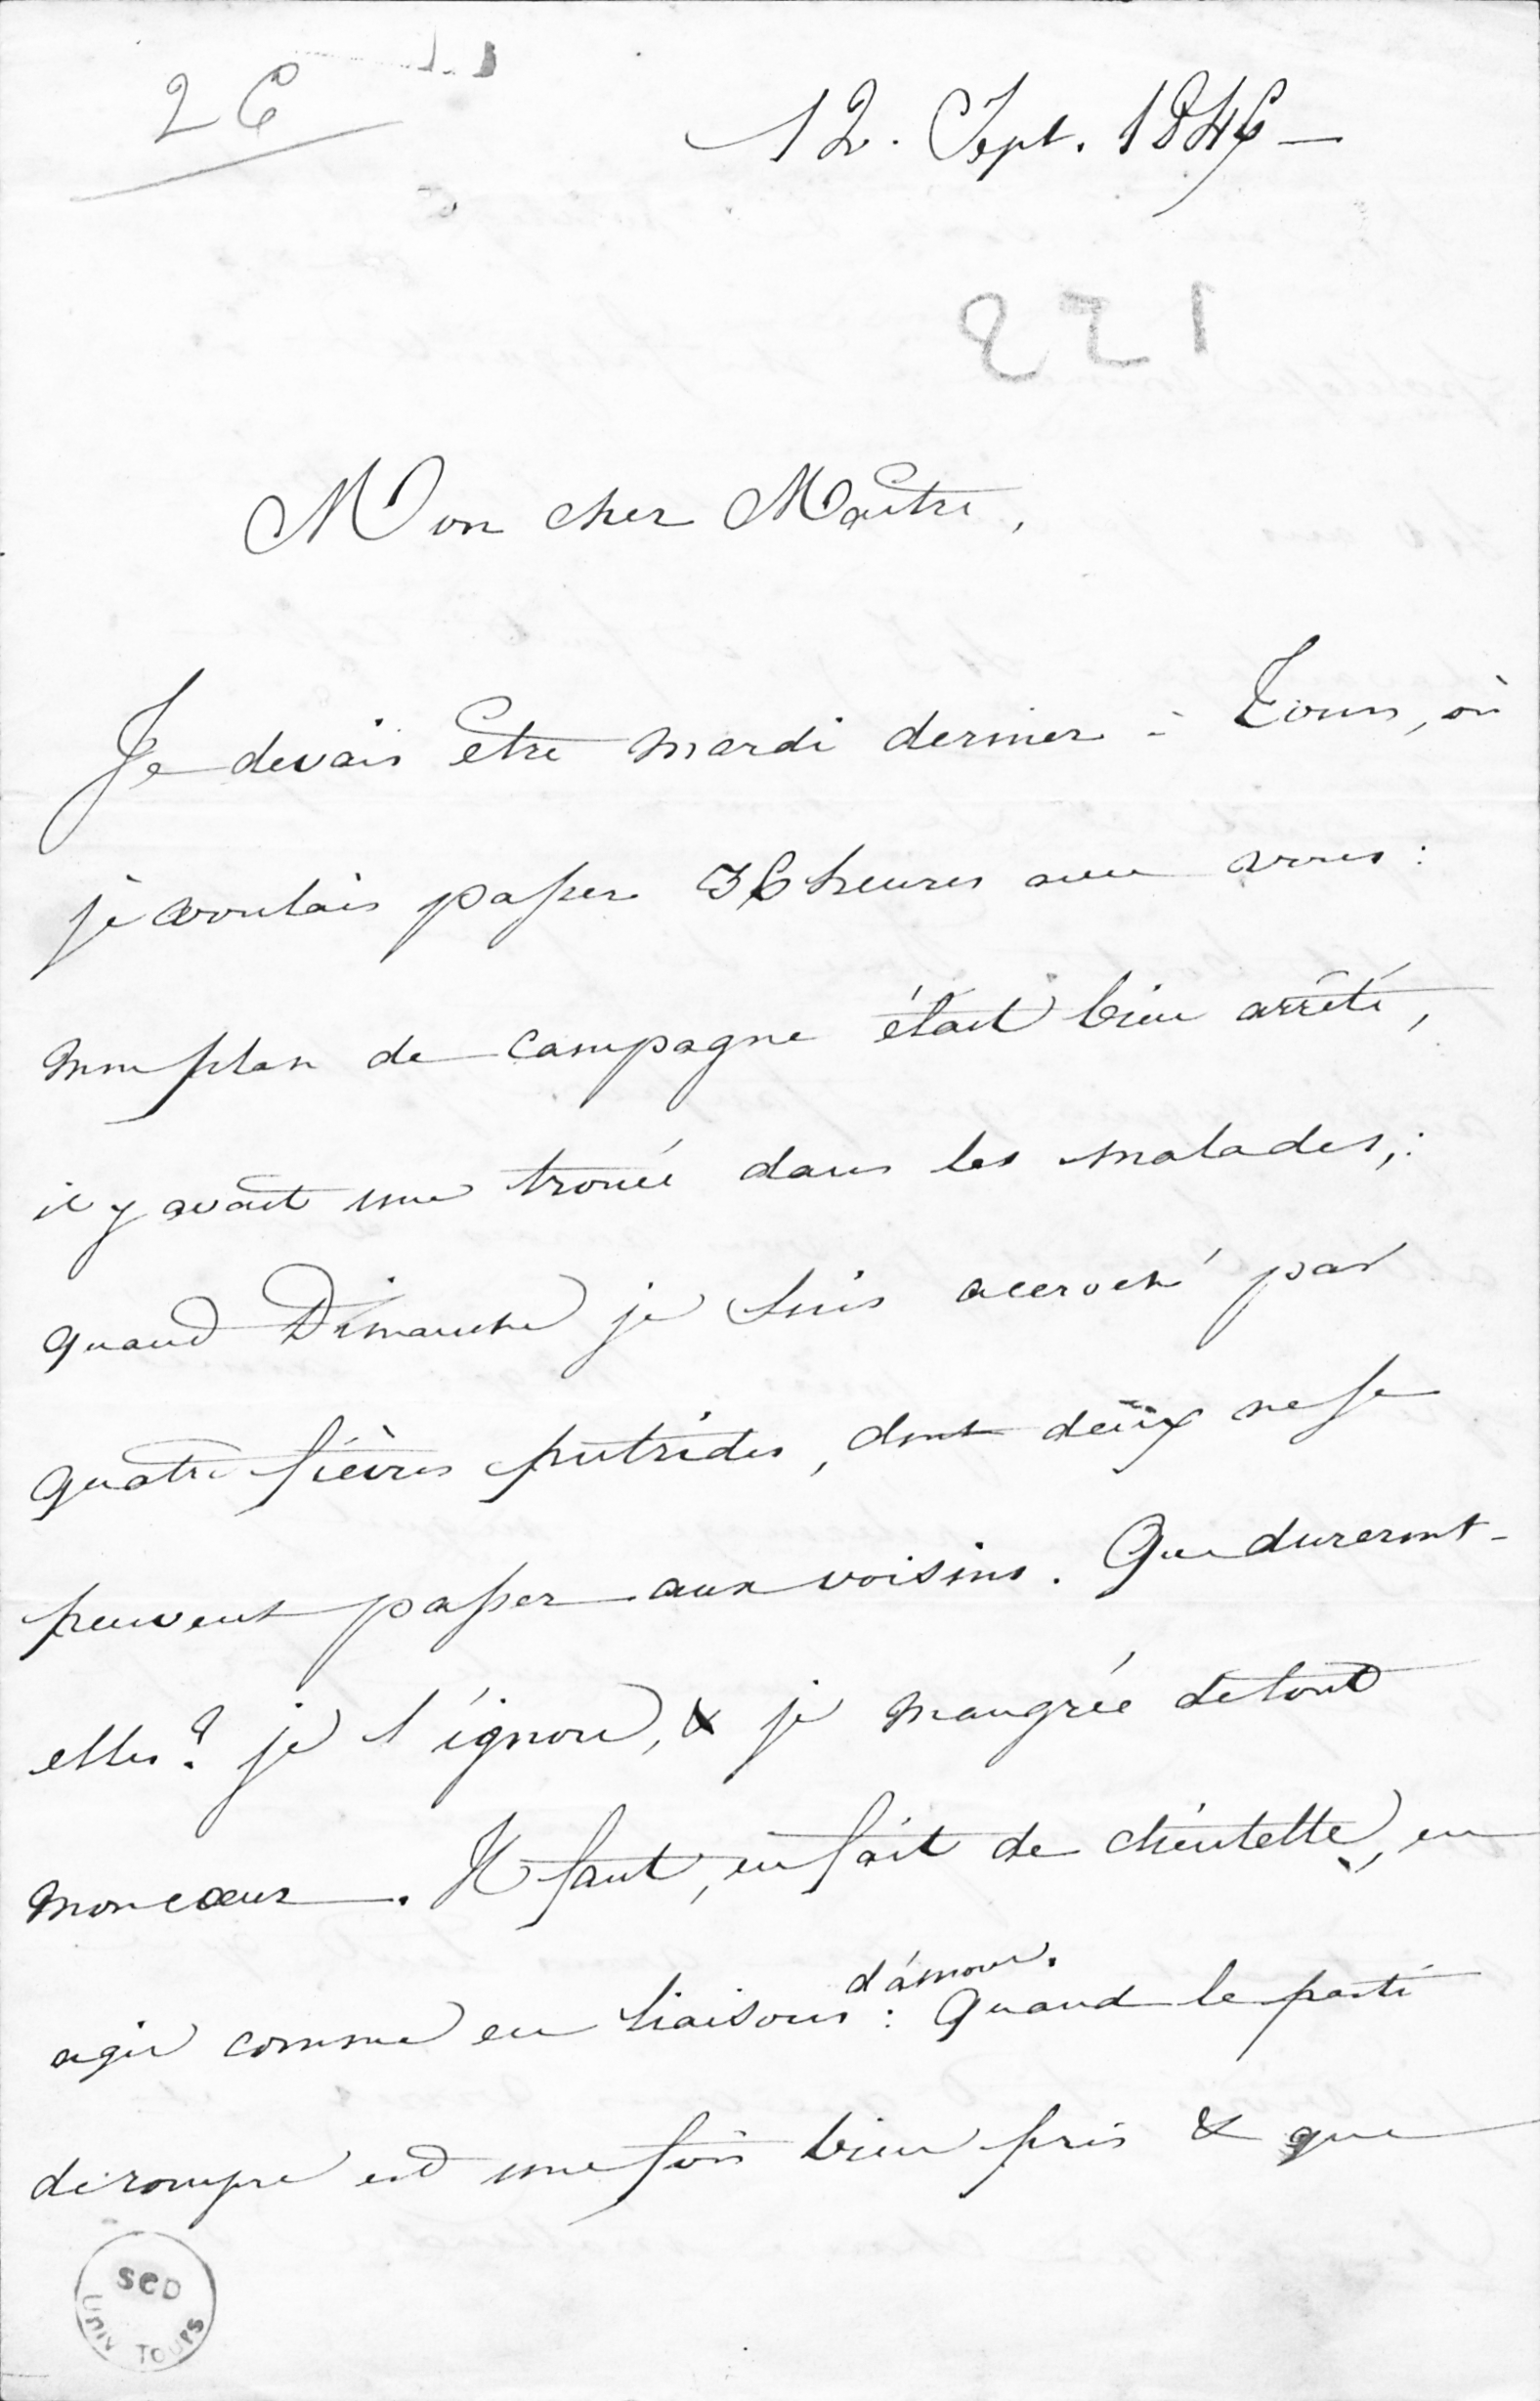 26
12. Sept. 1846 —
221
Mon cher Maître,
Je devais être mardi dernier à Tours, où
je voulais passer 36 heures avec vous :
mon plan de campagne était bien arrêté,
il y avait une trouée dans les malades, :
quand Dimanche je suis accroché par
quatre fièvres putrides, dont deux ne se
peuvent passer aux voisins. Que dureront-
elles ? je l'ignore, & je maugrée de tout
mon cœur. Il faut, en fait de clientelle, en
agir comme en liaisons d'amour. : Quand le parti
de rompre est une fois bien pris & que
SCD
Univ TOURS